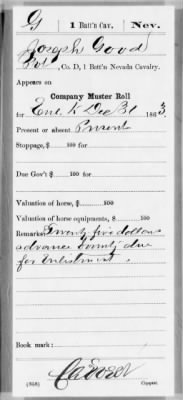 G | 1 Batt'n Cav. | Nev.
Joseph Good
Pvt., Co. D, 1 Batt'n Nevada Cavalry.
Appears on
Company Muster Roll
for Enl. to Dec 31, 1863
Present or absent Present
Stoppage, $ 100 for
Due Gov't $ 100 for
Valuation of horse, $ 100
Valuation of horse equipments, $ 100
Remarks: Twenty five dollars
advance bounty due
for Enlistment.
Book mark:
(858)
Copyist.